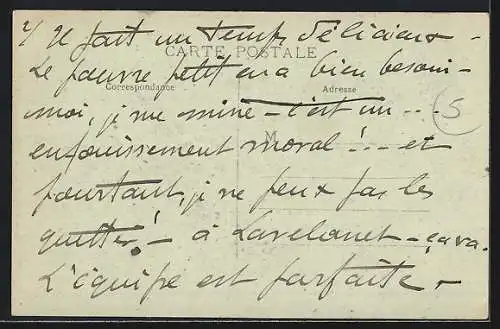 2/ Il fait un temps délicieux -
CARTE POSTALE
Le pauvre petit en a bien besoin -
Correspondance
Adresse
moi, je me mine - c'est un ...
5
M
enfouissement moral ! .. et
pourtant, je ne peux pas les
quitter ! - à Lavelanet - ça va.
L'équipe est parfaite -